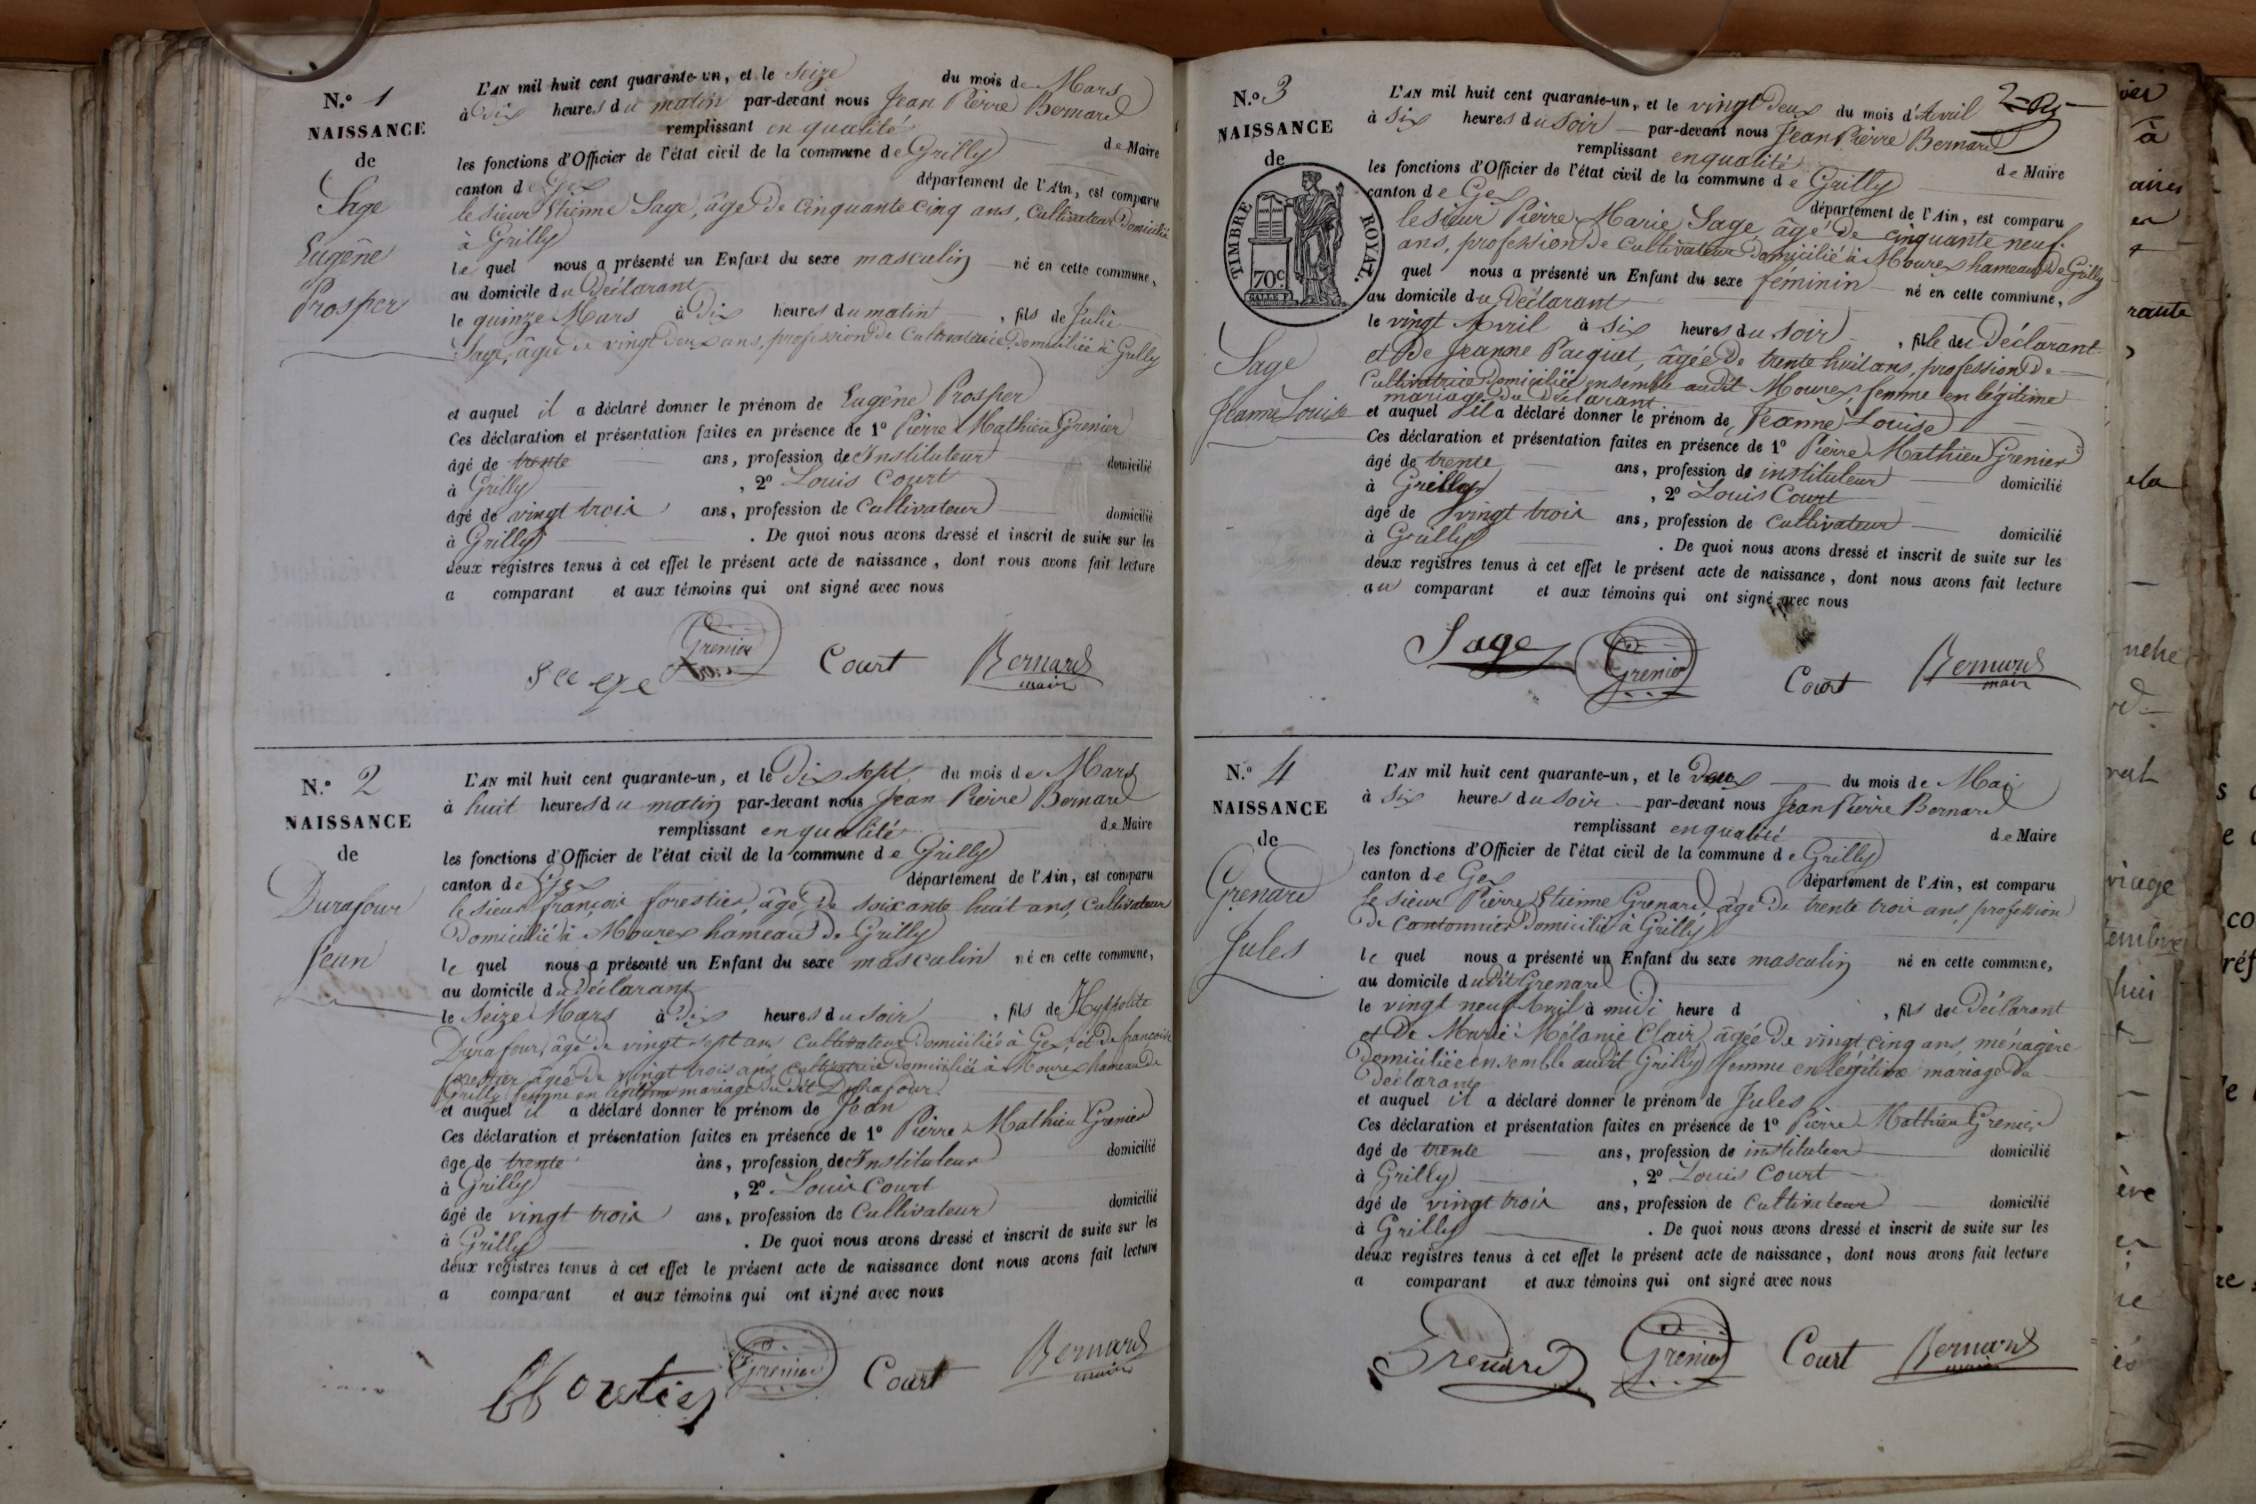 N.º 1
NAISSANCE
de
Sage
Eugêne
Prosper
L'AN mil huit cent quarante-un, et le Seize du mois de Mars
à dix heures du matin par-devant nous Jean Pierre Bernard
remplissant en qualité de Maire
les fonctions d'Officier de l'état civil de la commune de Grilly
canton de Gex département de l'Ain, est comparu
le sieur Etienne Sage, âgé de cinquante cinq ans, cultivateur domicilié
à Grilly
le quel nous a présenté un Enfant du sexe masculin né en cette commune,
au domicile du Déclarant
le quinze Mars à Dix heures du matin, fils de Julie
Sage, âgée de vingt deux ans, profession de Cultivatrice domiciliée à Grilly
et auquel il a déclaré donner le prénom de Eugêne Prosper
Ces déclaration et présentation faites en présence de 1º Pierre Mathieu Grenier
âgé de trente ans, profession de Instituteur domicilié
à Grilly, 2º Louis Court
âgé de vingt trois ans, profession de Cultivateur domicilié
à Grilly. De quoi nous avons dressé et inscrit de suite sur les
deux registres tenus à cet effet le présent acte de naissance, dont nous avons fait lecture
a comparant et aux témoins qui ont signé avec nous
Sage Grenier Court Bernard
maire
N.º 2
NAISSANCE
de
Durafour
Jean
L'AN mil huit cent quarante-un, et le Dix sept du mois de Mars
à huit heures du matin par-devant nous Jean Pierre Bernard
remplissant en qualité de Maire
les fonctions d'Officier de l'état civil de la commune de Grilly
canton de Gex département de l'Ain, est comparu
le sieur françois forestier, âgé de soixante huit ans, Cultivateur
Domicilié à Mourex hameau de Grilly
le quel nous a présenté un Enfant du sexe masculin né en cette commune,
au domicile du Déclarant
le Seize Mars à Dix heures du soir, fils de Hyppolite
Durafour, âgé de vingt sept ans Cultivateur domicilié à Gex, et de francoise
forestier âgée de vingt trois ans cultivatrice domiciliée à Mourex hameau de
Grilly femme en légitime mariage du dit Durafour
et auquel il a déclaré donner le prénom de Jean
Ces déclaration et présentation faites en présence de 1º Pierre Mathieu Grenier
âge de trente àns, profession de Instituteur domicilié
à Grilly, 2º Louis Court
âgé de vingt trois ans, profession de Cultivateur domicilié
à Grilly. De quoi nous avons dressé et inscrit de suite sur les
deux registres tenus à cet effet le présent acte de naissance dont nous avons fait lecture
a comparant et aux témoins qui ont signé avec nous
fforestier Grenier Court Bernard
maire
N.º 3
NAISSANCE
de
TIMBRE ROYAL.
70c
Sage
Jeanne Louise
L'AN mil huit cent quarante-un, et le vingt Deux du mois d'Avril
à six heures du soir par-devant nous Jean Pierre Bernard
remplissant en qualité de Maire
les fonctions d'Officier de l'état civil de la commune de Grilly
canton de Gex département de l'Ain, est comparu
le sieur Pierre Marie Sage, âgé de cinquante neuf
ans, profession de Cultivateur domicilié à Mourex hameau de Grilly
quel nous a présenté un Enfant du sexe féminin né en cette commune,
au domicile du Déclarant
le vingt Avril à six heures du soir, fille du Déclarant
et De Jeanne Pacquet, âgée de trente huit ans, profession De
Cultivatrice Domiciliée ensemble audit Mourex, femme en légitime
mariage du Déclarant
et auquel il a déclaré donner le prénom de Jeanne Louise
Ces déclaration et présentation faites en présence de 1º Pierre Mathieu Grenier
âgé de trente ans, profession de instituteur domicilié
à Grilly, 2º Louis Court
âgé de vingt trois ans, profession de Cultivateur domicilié
à Grilly. De quoi nous avons dressé et inscrit de suite sur les
deux registres tenus à cet effet le présent acte de naissance, dont nous avons fait lecture
au comparant et aux témoins qui ont signé avec nous
Sage Grenier Court Bernard
maire
N.º 4
NAISSANCE
de
Grenard
Jules
L'AN mil huit cent quarante-un, et le Deux du mois de Mai
à six heures du soir par-devant nous Jean Pierre Bernard
remplissant en qualité de Maire
les fonctions d'Officier de l'état civil de la commune de Grilly
canton de Gex département de l'Ain, est comparu
le sieur Pierre Etienne Grenard âgé de trente trois ans, profession
de Cantonnier Domicilié à Grilly
le quel nous a présenté un Enfant du sexe masculin né en cette commune,
au domicile dudit Grenard
le vingt neuf Avril à midi heure d, fils du Déclarant
et De Marie Mélanie Clair, âgée de vingt cinq ans, ménagère
domiciliée ensemble audit Grilly femme en légitime mariage du
Déclarant
et auquel il a déclaré donner le prénom de Jules
Ces déclaration et présentation faites en présence de 1º Pierre Mathieu Grenier
âgé de trente ans, profession de instituteur domicilié
à Grilly, 2º Louis Court
âgé de vingt trois ans, profession de Cultivateur domicilié
à Grilly. De quoi nous avons dressé et inscrit de suite sur les
deux registres tenus à cet effet le présent acte de naissance, dont nous avons fait lecture
a comparant et aux témoins qui ont signé avec nous
Grenard Grenier Court Bernard
maire